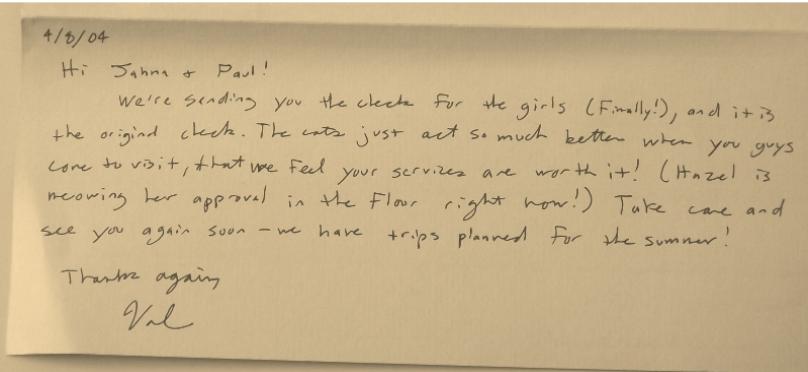 4/8/04
Hi Jahna + Paul!
We're sending you the check for the girls (Finally!), and it is
the original check. The cats just act so much better when you guys
come to visit, that we feel your services are worth it! (Hazel is
meowing her approval in the floor right now!) Take care and
see you again soon - we have trips planned for the summer!
Thanks again,
Val